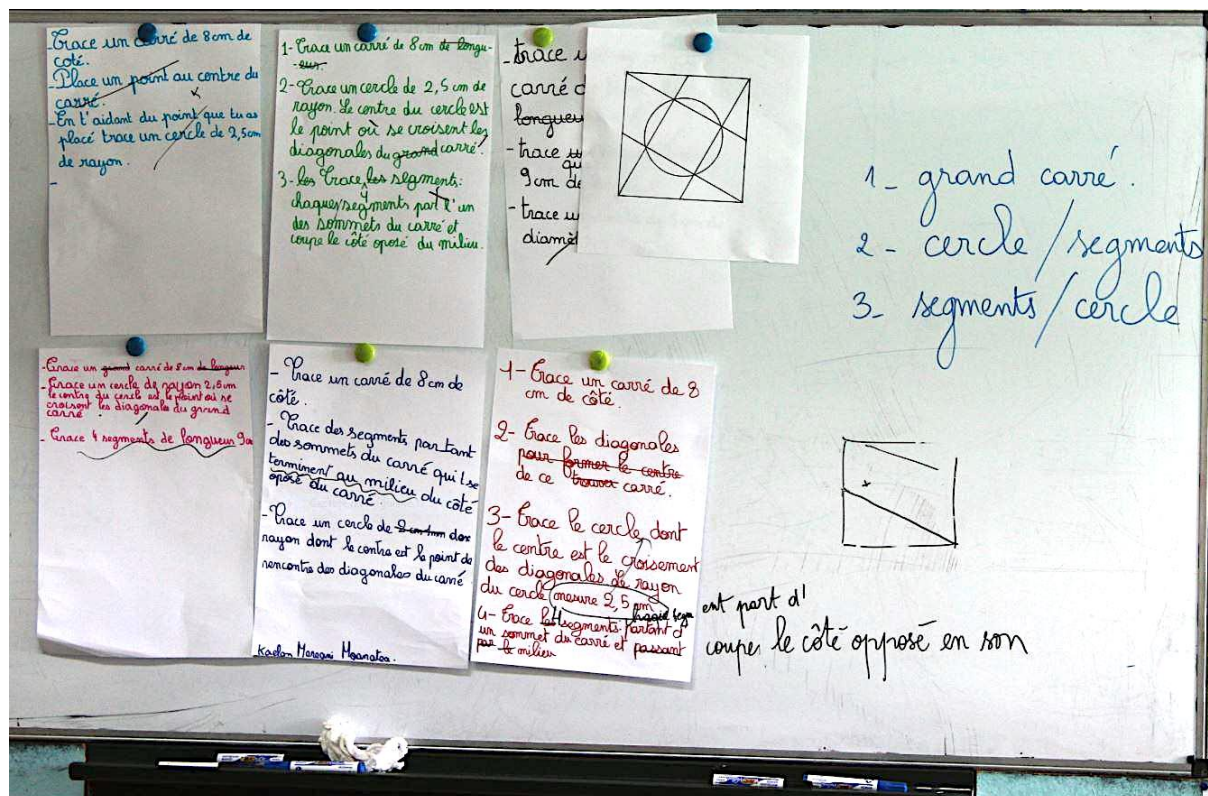 - Trace un carré de 8cm de
coté.
- Place un point au centre du
carré.
- En t'aidant du point que tu as
placé trace un cercle de 2,5cm
de rayon.
-
1- Trace un carré de 8cm de longu-
eur.
2- Trace un cercle de 2,5 cm de
rayon. Le centre du cercle est
le point où se croisent les
diagonales du grand carré.
3- les Trace les segments:
chaques segments part l'un
des sommets du carré et
coupe le côté oposé du milieu.
- trace u
carré d
longueu
- trace u
qu
9cm de
- trace u
diamèt
1_ grand carré.
2 - cercle / segments
3_ segments / cercle
- Trace un grand carré de 8cm de longeur
- Trace un cercle de rayon 2,5cm
le centre du cercle est le point où se
croisent les diagonales du grand
carré
- Trace 4 segments de longueur 9cm
- Trace un carré de 8cm de
côté.
- Trace des segments partant
des sommets du carré qui se
terminent au milieu du côté
oposé du carré.
- Trace un cercle de
rayon dont le centre est le point de
rencontre des diagonales du carré
1- Trace un carré de 8
cm de côté.
2- Trace les diagonales
pour former le centre
de ce trouver carré.
3- Trace le cercle dont
le centre est le croisement
des diagonales de rayon
du cercle mesure 2,5 cm
4- Trace les 4 segments partant d'
un sommet du carré et passant
par le milieu
est part d'
coupe le côté opposé en son